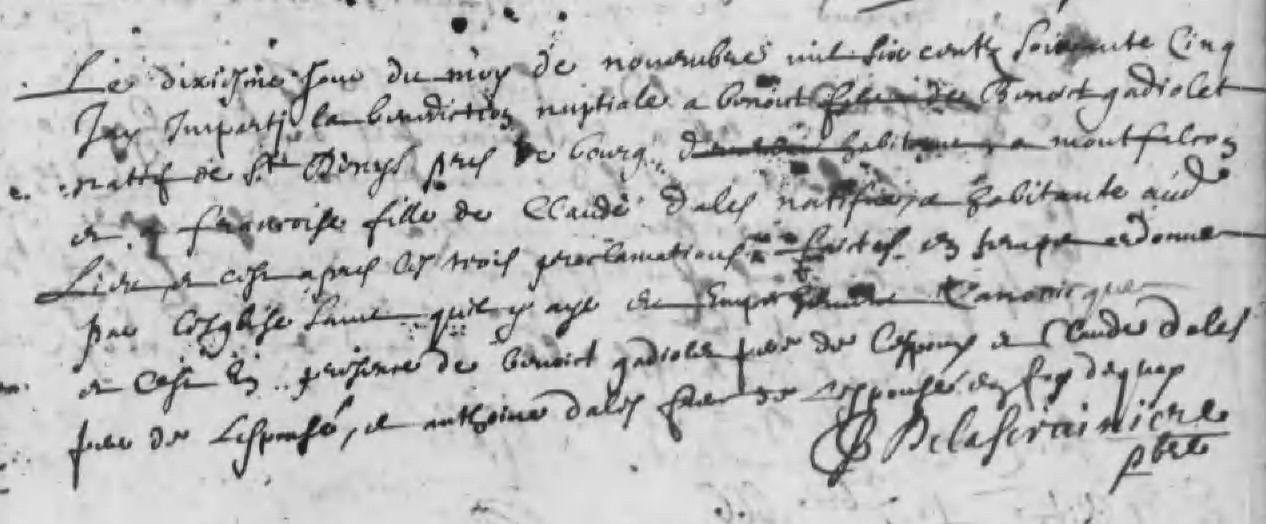 Le dixisme jour du moys de novembre mil six centz soixante Cinq
Jay Imparty la benediction nuptiale a benoict filz de Benoict gadiolet
natif de St Denys pres de bourg habitant a montfalcon
et a francoise fille de Claude dales natifve et habitante aud
Lieu et cest apres les trois proclamations faictes en temps ordonne
par lesglise sans quil y aye eu Empeschement Canonique
et cest En presence de benoict gadiolet pere de lespoux et Claude dales
pere de Lespouse, et anthoine dales frere de Lespouse en foy dequoy
Delaserainiere
pbre